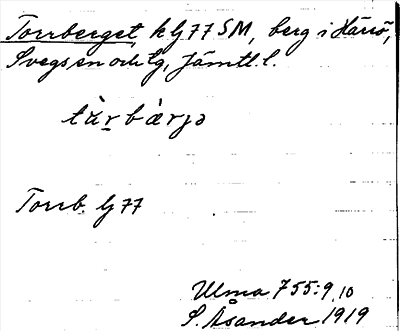 Torrberget, k Lj 77 SM, berg i Härrö,
Svegs sn och tg, Jämtl. l.
tàr̲bàrjə
Torrb. Lj 77
Ulma 755:9, 10
S. Åsander 1919